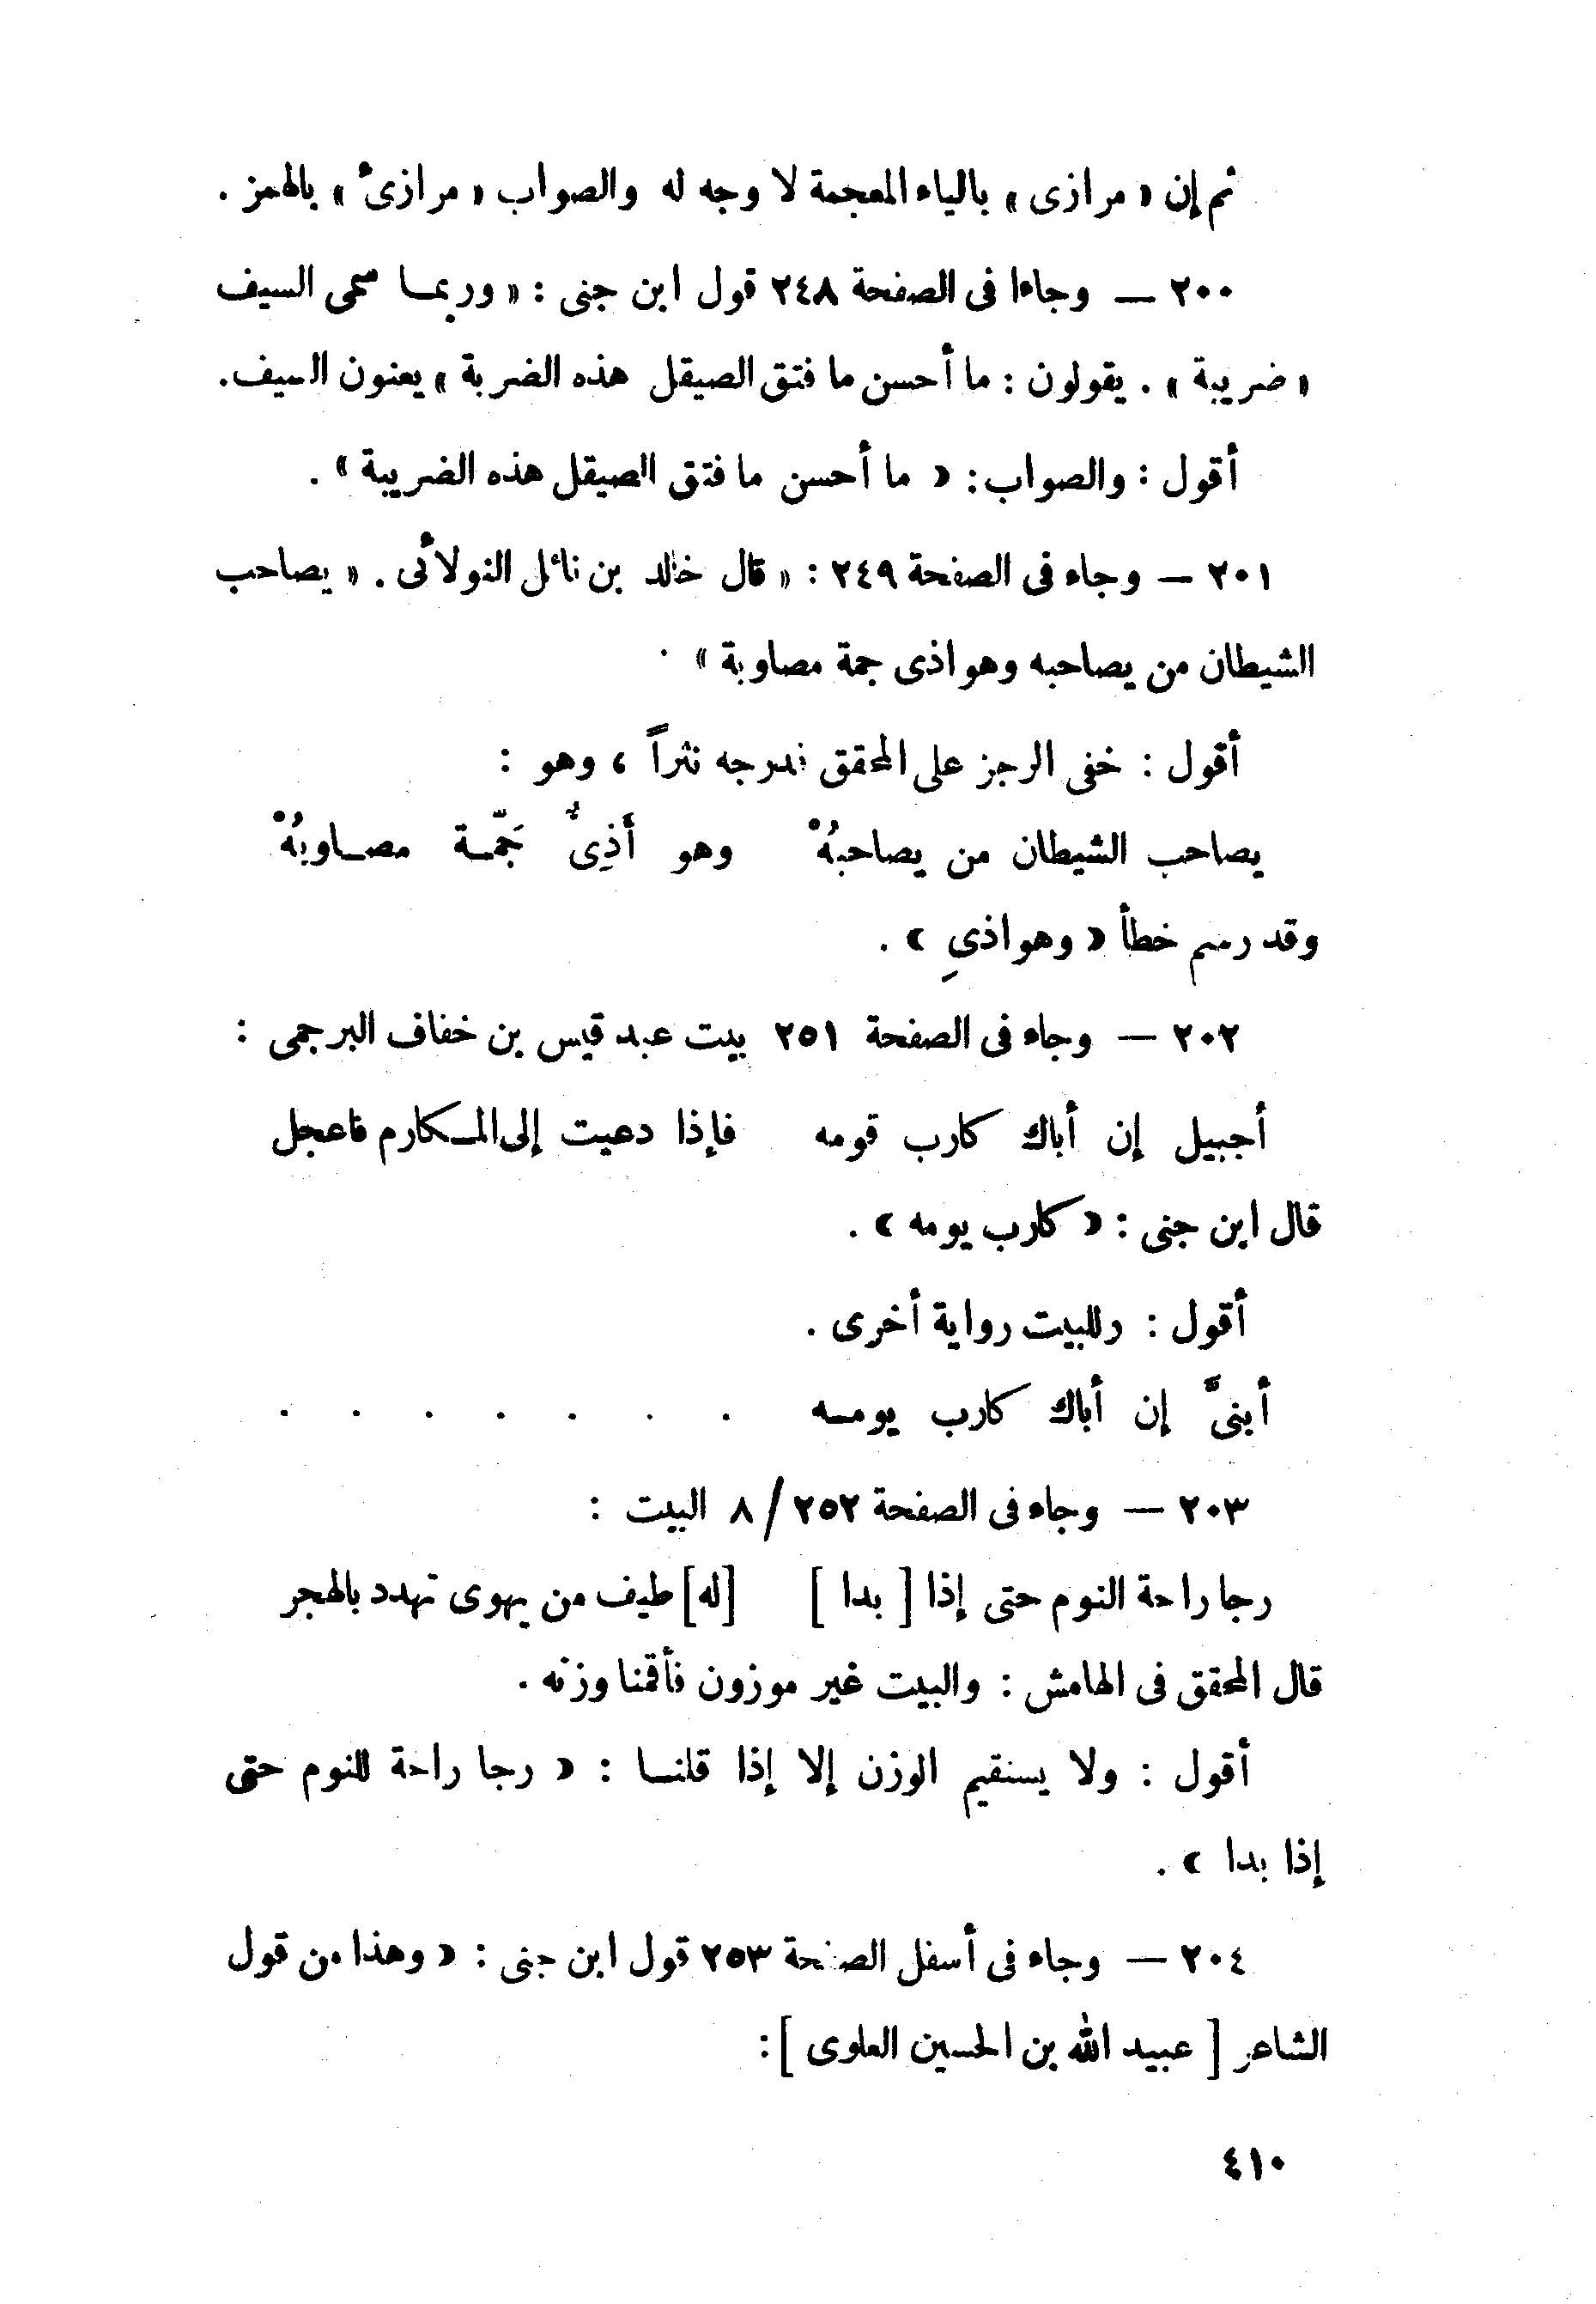 ثم إن « مرازى » بالياء المعجمة لا وجه له والصواب « مرازئ » بالهمز .
٢٠٠ — وجاءا فى الصفحة ٢٤٨ قول ابن جنى : « وربمـا سمى السيف
« ضريبة » . يقولون : ما أحسن ما فتق الصيقل هذه الضربة » يعنون السيف .
أقول : والصواب : « ما أحسن ما فتق الصيقل هذه الضريبة » .
٢٠١ — وجاء فى الصفحة ٢٤٩ : « قال خالد بن نائل النولائى . « يصاحب
الشيطان من يصاحبه وهو اذى جمة مصاوبة » .
أقول : خفى الرجز على المحقق ندرجه نثراً ، وهو :
يصاحب الشيطان من يصاحبُهْ وهو أَذِىٌّ جَمّـة مصـاوبُهْ
وقد رسم خطأ « وهو اذىِ » .
٢٠٢ — وجاء فى الصفحة ٢٥١ بيت عبد قيس بن خفاف البرجمى :
أجبيل إن أباك كارب قومه فإذا دعيت إلى المـكارم فاعجل
قال ابن جنى : « كارب يومه » .
أقول : وللبيت رواية أخرى .
أبنىَّ إن أباك كارب يومـه . . . . . . .
٢٠٣ — وجاء فى الصفحة ٢٥٢ / ٨ البيت :
رجا راحة النوم حتى إذا [ بدا ] [له] طيف من يهوى تهدد بالهجر
قال المحقق فى الهامش : والبيت غير موزون فأقمنا وزنه .
أقول : ولا يستقيم الوزن إلا إذا قلنـا : « رجا راحة للنوم حتى
إذا بدا » .
٢٠٤ — وجاء فى أسفل الصفحة ٢٥٣ قول ابن جنى : « وهذا من قول
الشاعر [ عبيد الله بن الحسين العلوى ] :
٤١٠